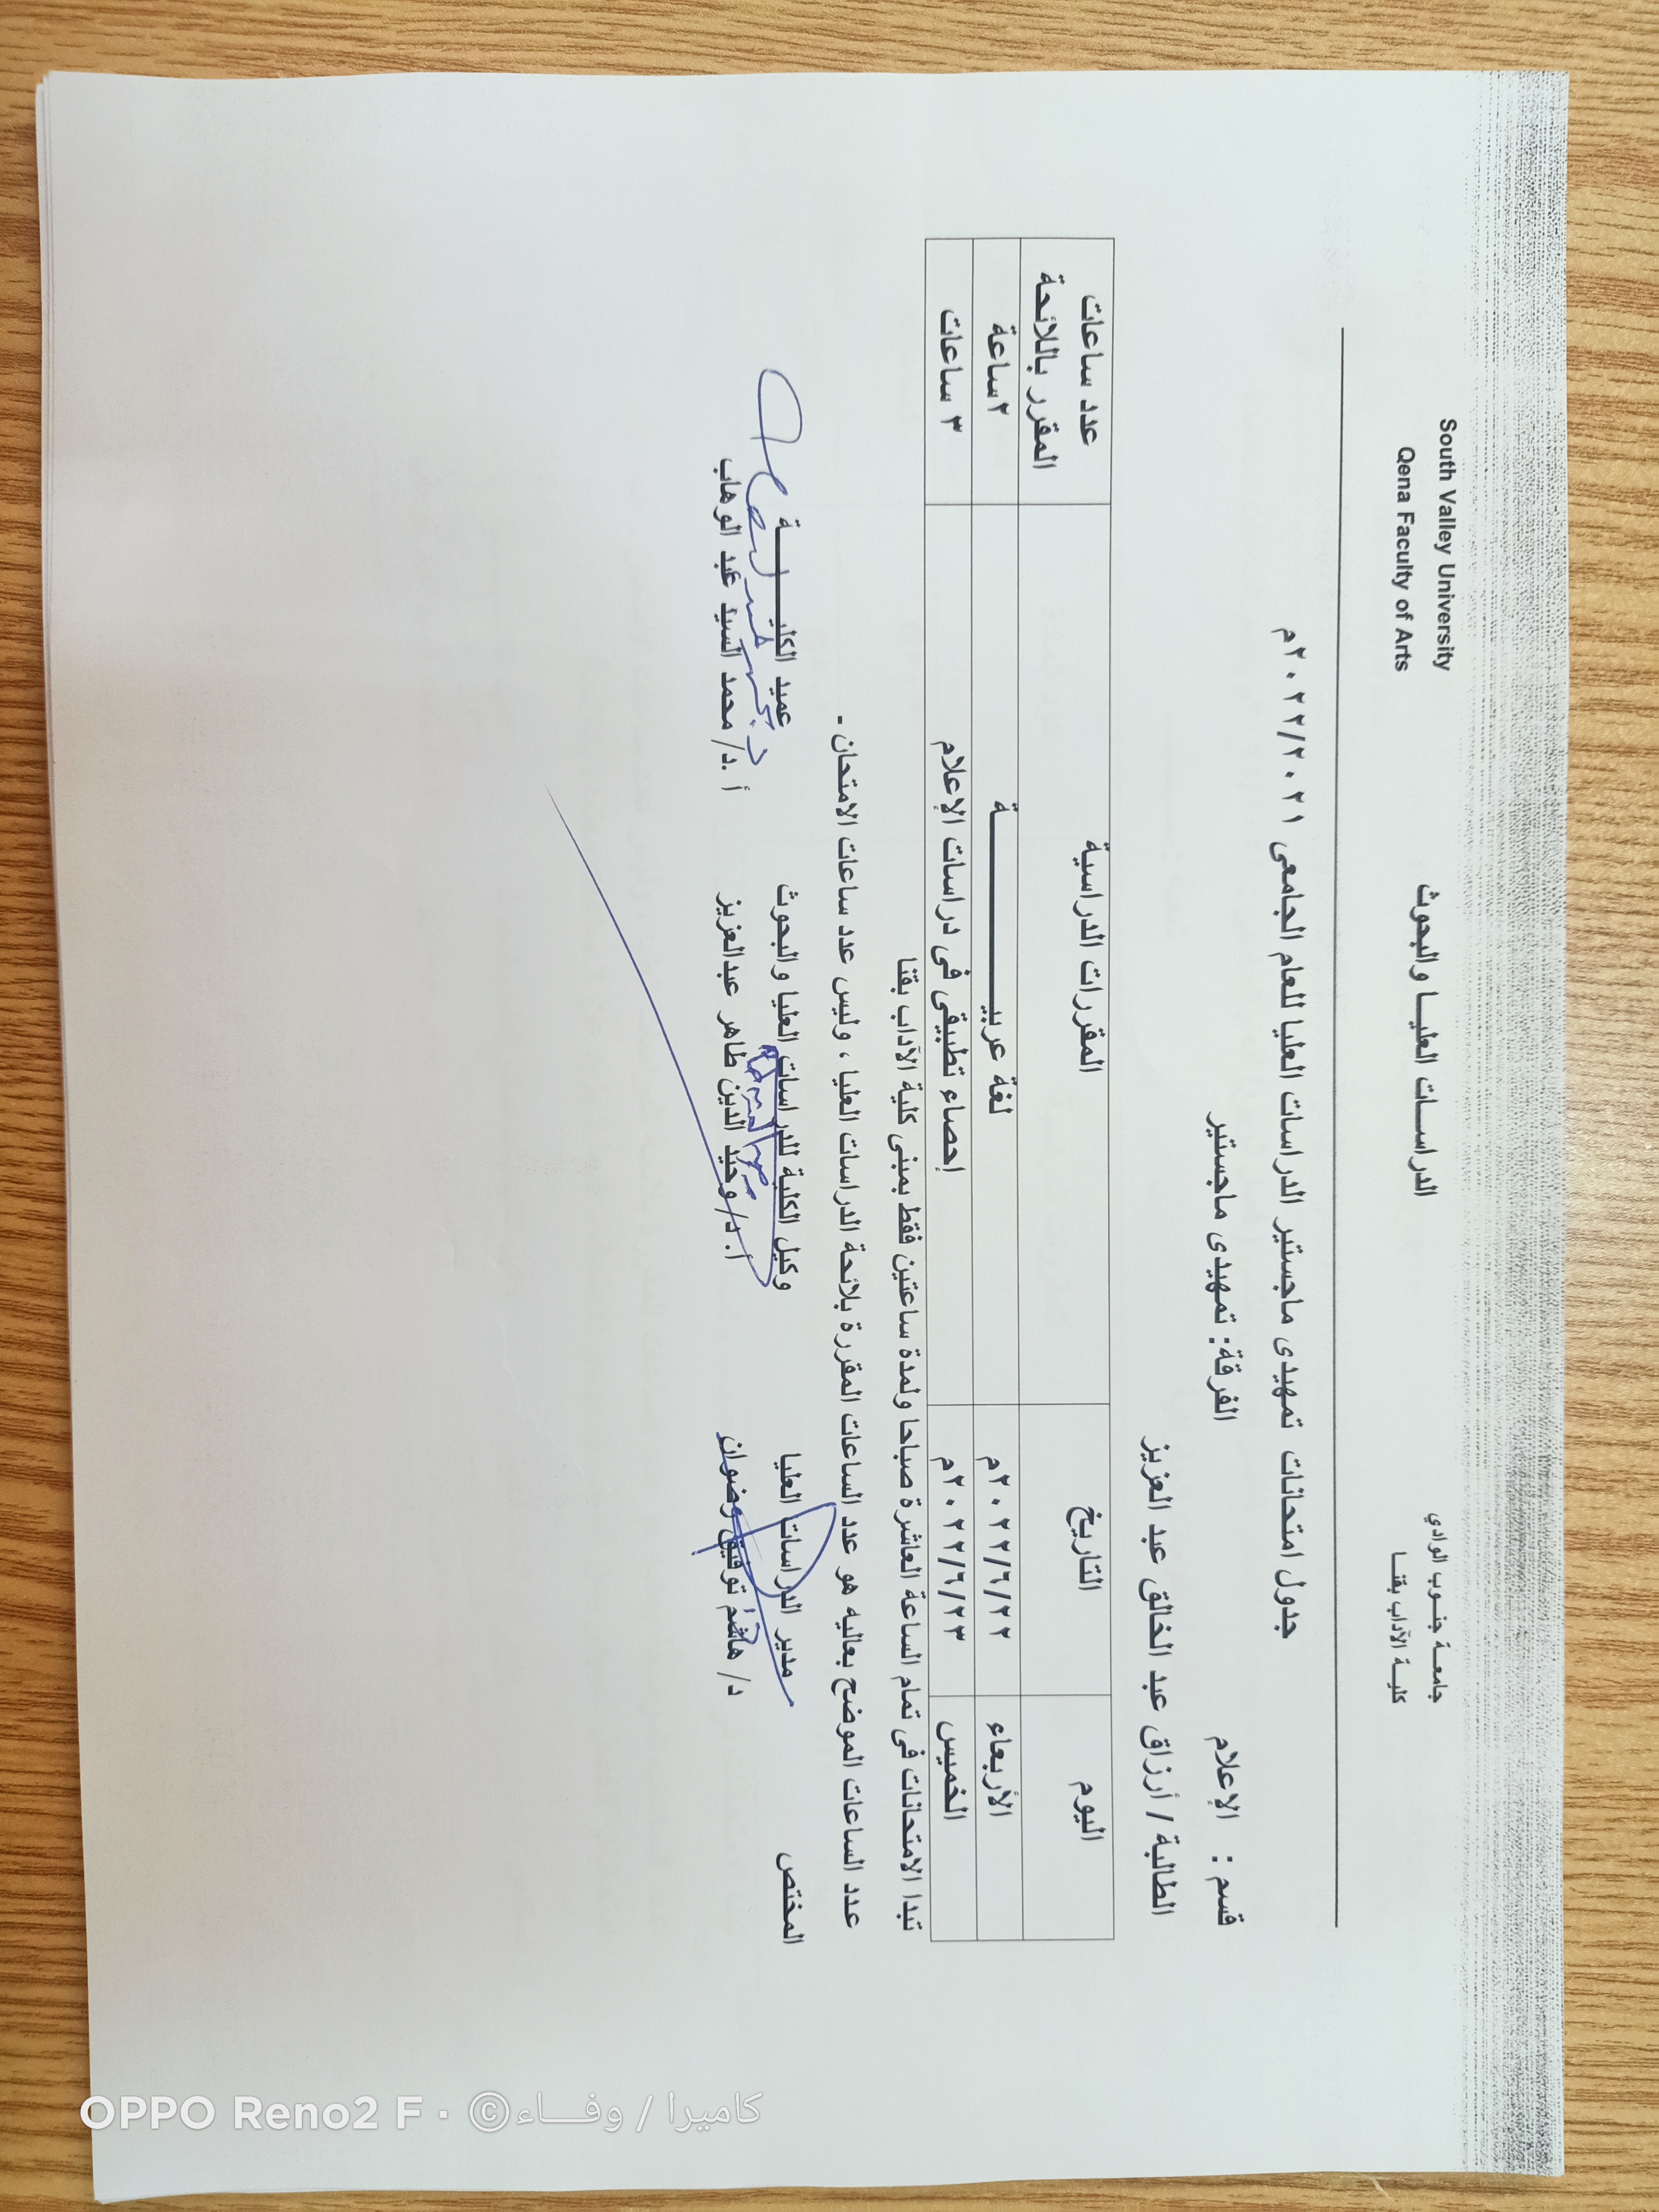 جامعة جنوب الوادي
كلية الآداب بقنا
الدراسات العليا والبحوث
South Valley University
Qena Faculty of Arts
جدول امتحانات تمهيدى ماجستير الدراسات العليا للعام الجامعى ٢٠٢٢/٢٠٢١م
قسم : الإعلام الفرقة: تمهيدى ماجستير
الطالبة / أرزاق عبد الخالق عبد العزيز
اليوم التاريخ المقررات الدراسية عدد ساعات المقرر باللائحة
الأربعاء ٢٠٢٢/٦/٢٢م لغة عربية ٢ساعة
الخميس ٢٠٢٢/٦/٢٣م إحصاء تطبيقى فى دراسات الإعلام ٣ ساعات
تبدا الامتحانات فى تمام الساعة العاشرة صباحا ولمدة ساعتين فقط بمبنى كلية الآداب بقنا
عدد الساعات الموضح بعاليه هو عدد الساعات المقررة بلائحة الدراسات العليا ، وليس عدد ساعات الامتحان .
المختص مدير الدراسات العليا وكيل الكلية للدراسات العليا والبحوث عميد الكلية
د/ هاشم توفيق رضوان أ.د/وحيد الدين طاهر عبدالعزيز أ.د/ محمد السيد عبد الوهاب
OPPO Reno2 F · ©كاميرا / وفاء